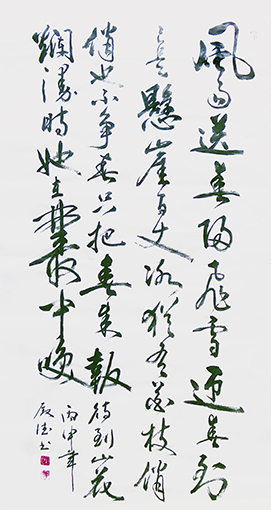 風雨送春归飛雪迎春到
已是懸崖百丈冰猶有花枝俏
俏也不争春只把春来報待到山花
爛漫時她在叢中笑
丙申年
书